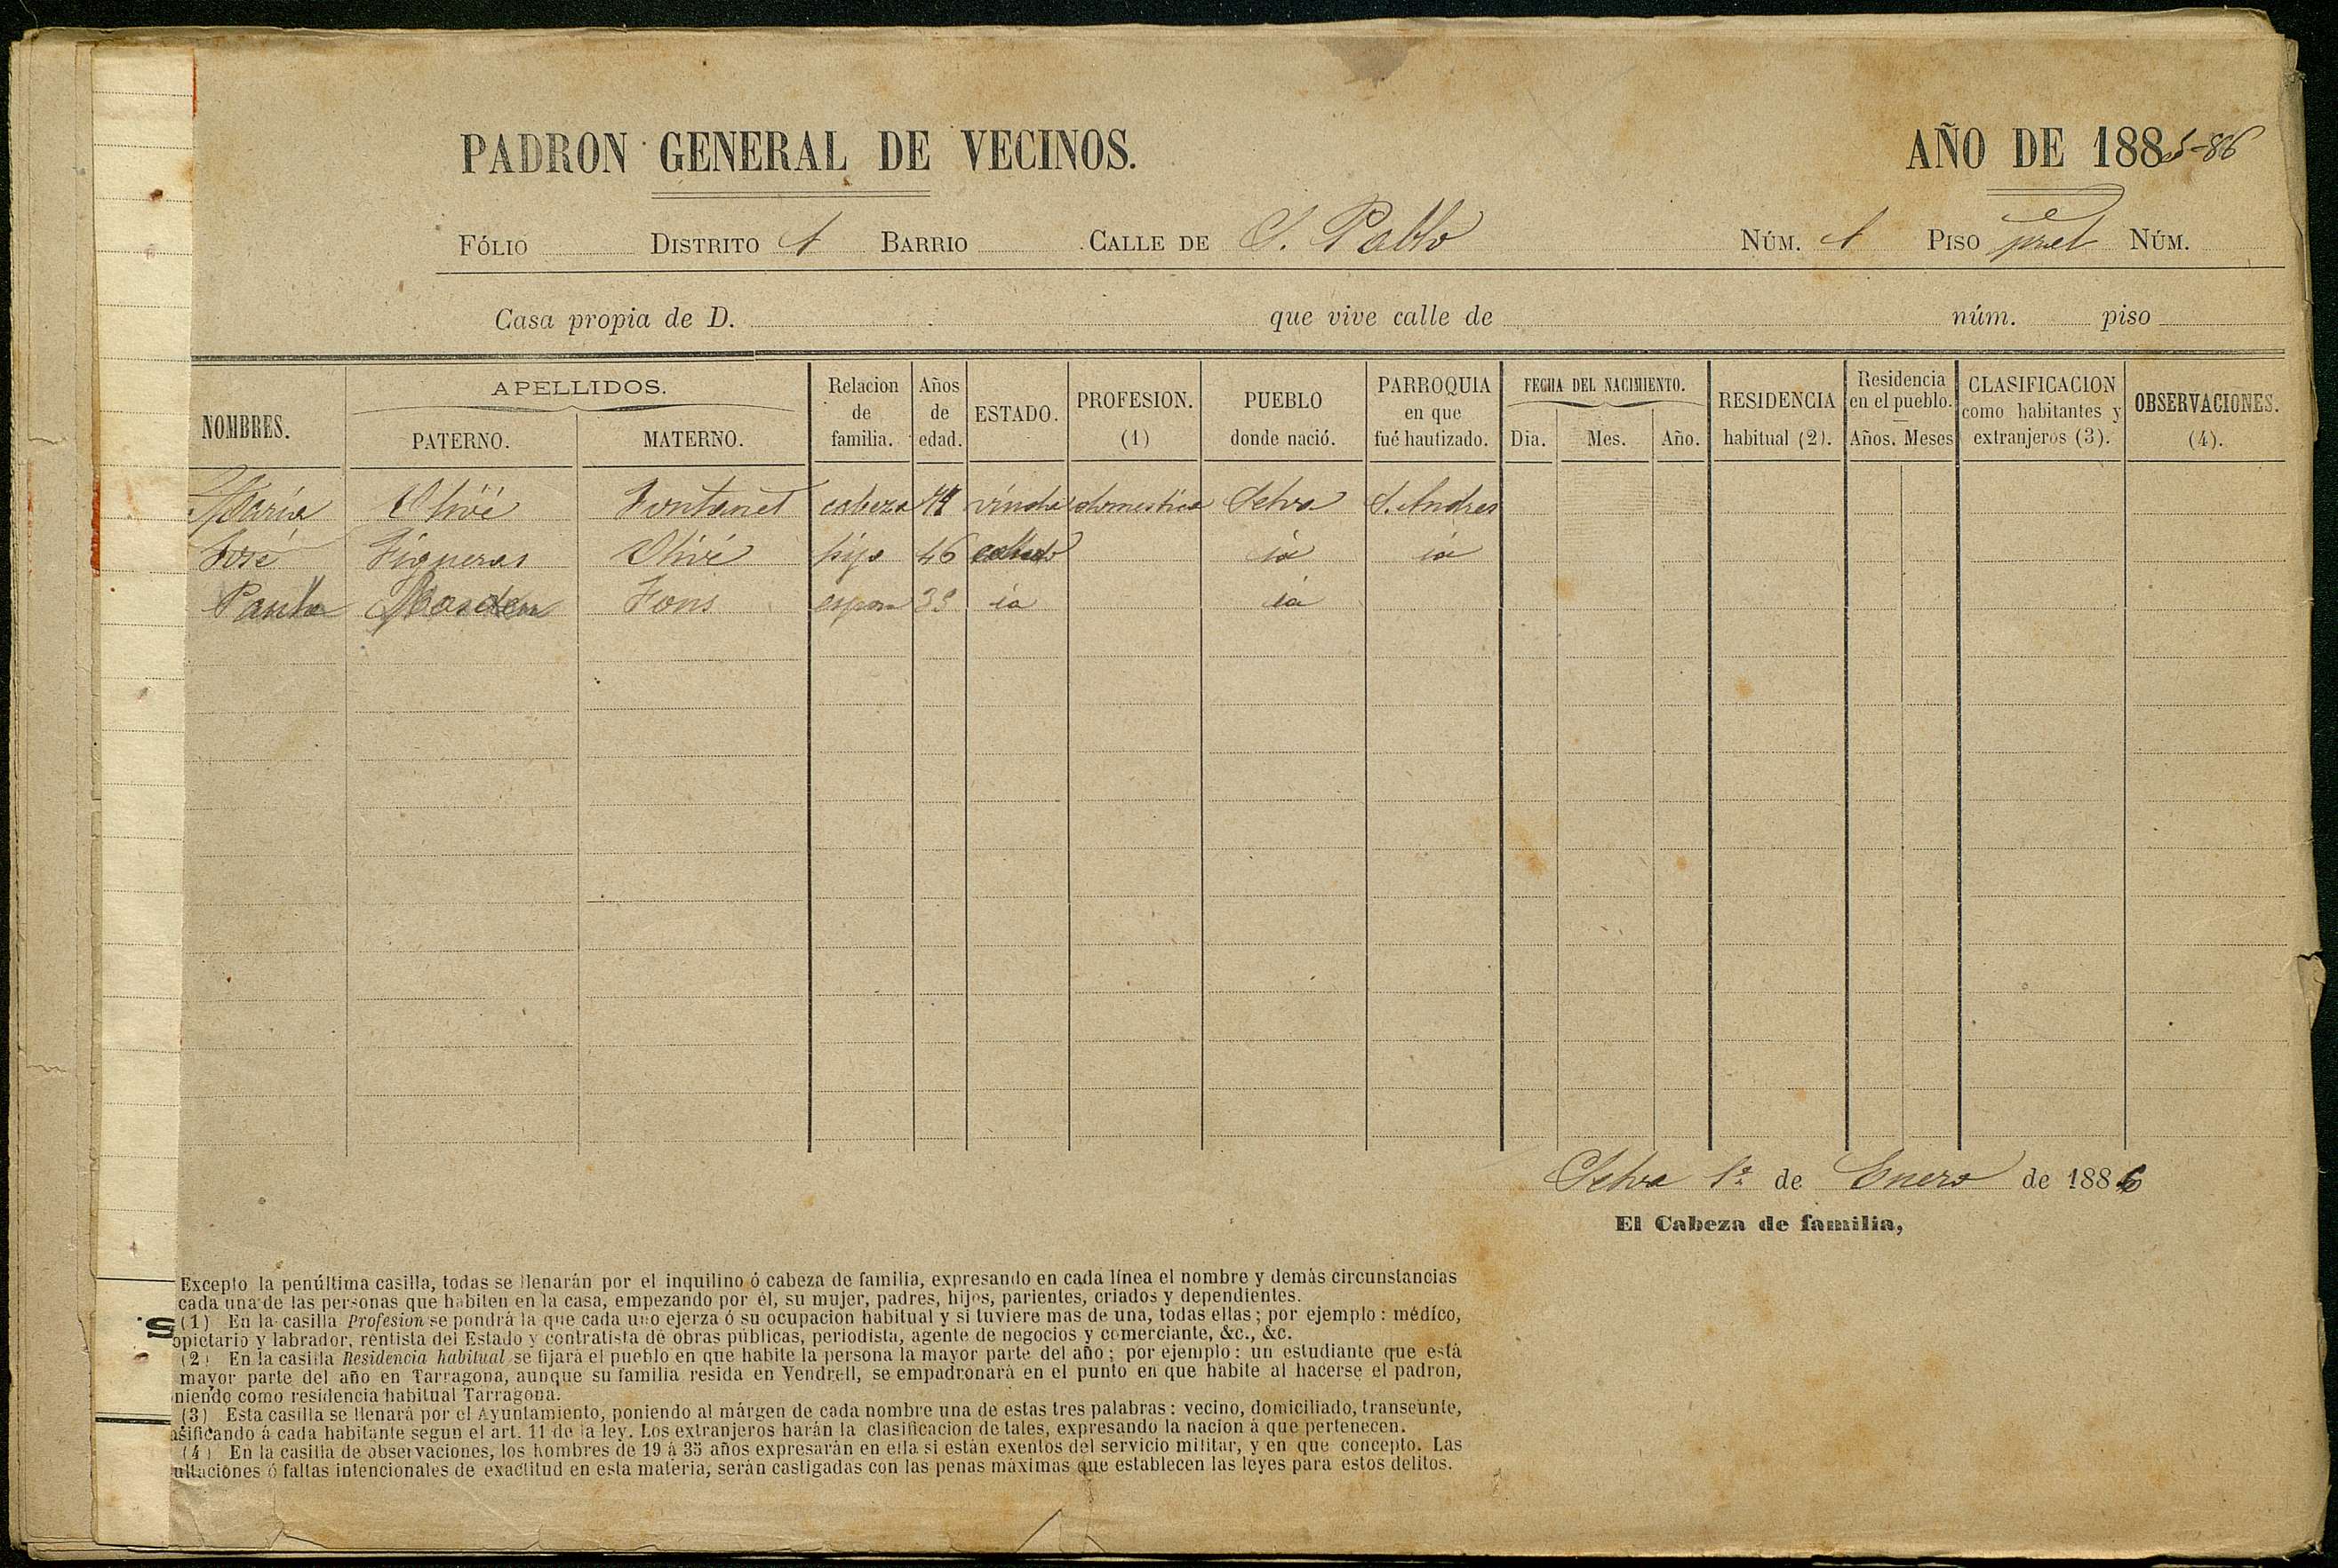 PADRON GENERAL DE VECINOS. AÑO DE 1885-86
FÓLIO DISTRITO 1 BARRIO CALLE DE S. Pablo NÚM. 1 PISO pral NÚM.
Casa propia de D. que vive calle de núm. piso
NOMBRES. APELLIDOS. PATERNO. MATERNO. Relacion de familia. Años de edad. ESTADO. PROFESION. (1) PUEBLO donde nació. PARROQUIA en que fué bautizado. FECHA DEL NACIMIENTO. Dia. Mes. Año. RESIDENCIA habitual (2). Residencia en el pueblo. Años. Meses CLASIFICACION como habitantes y extranjeros (3). OBSERVACIONES. (4).
María Olivé Fontanet cabeza viuda domestica Selva S. Andres
José Figueras Olivé hijo 46 casado id id
Paula Fons esposa id id
Selva 1º de Enero de 1886
El Cabeza de familia,
Excepto la penúltima casilla, todas se llenarán por el inquilino ó cabeza de familia, expresando en cada línea el nombre y demás circunstancias
cada una de las personas que habiten en la casa, empezando por él, su mujer, padres, hijos, parientes, criados y dependientes.
(1) En la casilla Profesion se pondrá la que cada uno ejerza ó su ocupacion habitual y si tuviere mas de una, todas ellas; por ejemplo: médico,
opietario y labrador, rentista del Estado y contratista de obras públicas, periodista, agente de negocios y comerciante, &c., &c.
(2) En la casilla Residencia habitual se fijará el pueblo en que habite la persona la mayor parte del año; por ejemplo: un estudiante que está
mayor parte del año en Tarragona, aunque su familia resida en Vendrell, se empadronará en el punto en que habite al hacerse el padron,
niendo como residencia habitual Tarragona.
(3) Esta casilla se llenará por el Ayuntamiento, poniendo al márgen de cada nombre una de estas tres palabras: vecino, domiciliado, transeunte,
asificando á cada habitante segun el art. 11 de la ley. Los extranjeros harán la clasificacion de tales, expresando la nacion á que pertenecen.
(4) En la casilla de observaciones, los hombres de 19 á 35 años expresarán en ella si están exentos del servicio militar, y en que concepto. Las
ultaciones ó faltas intencionales de exactitud en esta materia, serán castigadas con las penas máximas que establecen las leyes para estos delitos.